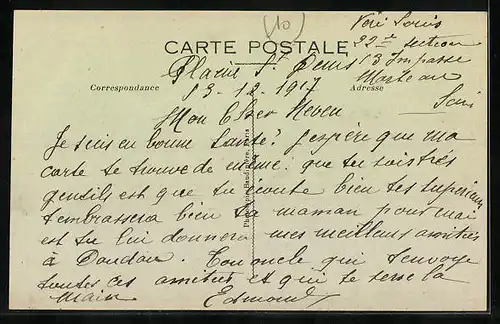 10
Voir Louis
22e section
CARTE POSTALE
13 Impasse
Plaine St Denis
Marteau
Correspondance
13-12-1917
Adresse
Mon Cher Neveu
Je suis en bonne santé? J'espère que ma
carte te trouve de même. que tu sois très
gentils est que tu écoute bien tes supérieur
tembrassera bien ta maman pour moi
est tu lui donnera mes meilleurs amitiés
à Doudou. Ton oncle qui t'envoye
toutes ces amitiés et qui te serre la
main Edmond